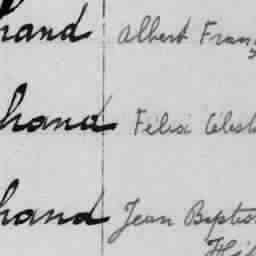 hand Albert Fran
hand Félix Célest
hand Jean Baptis